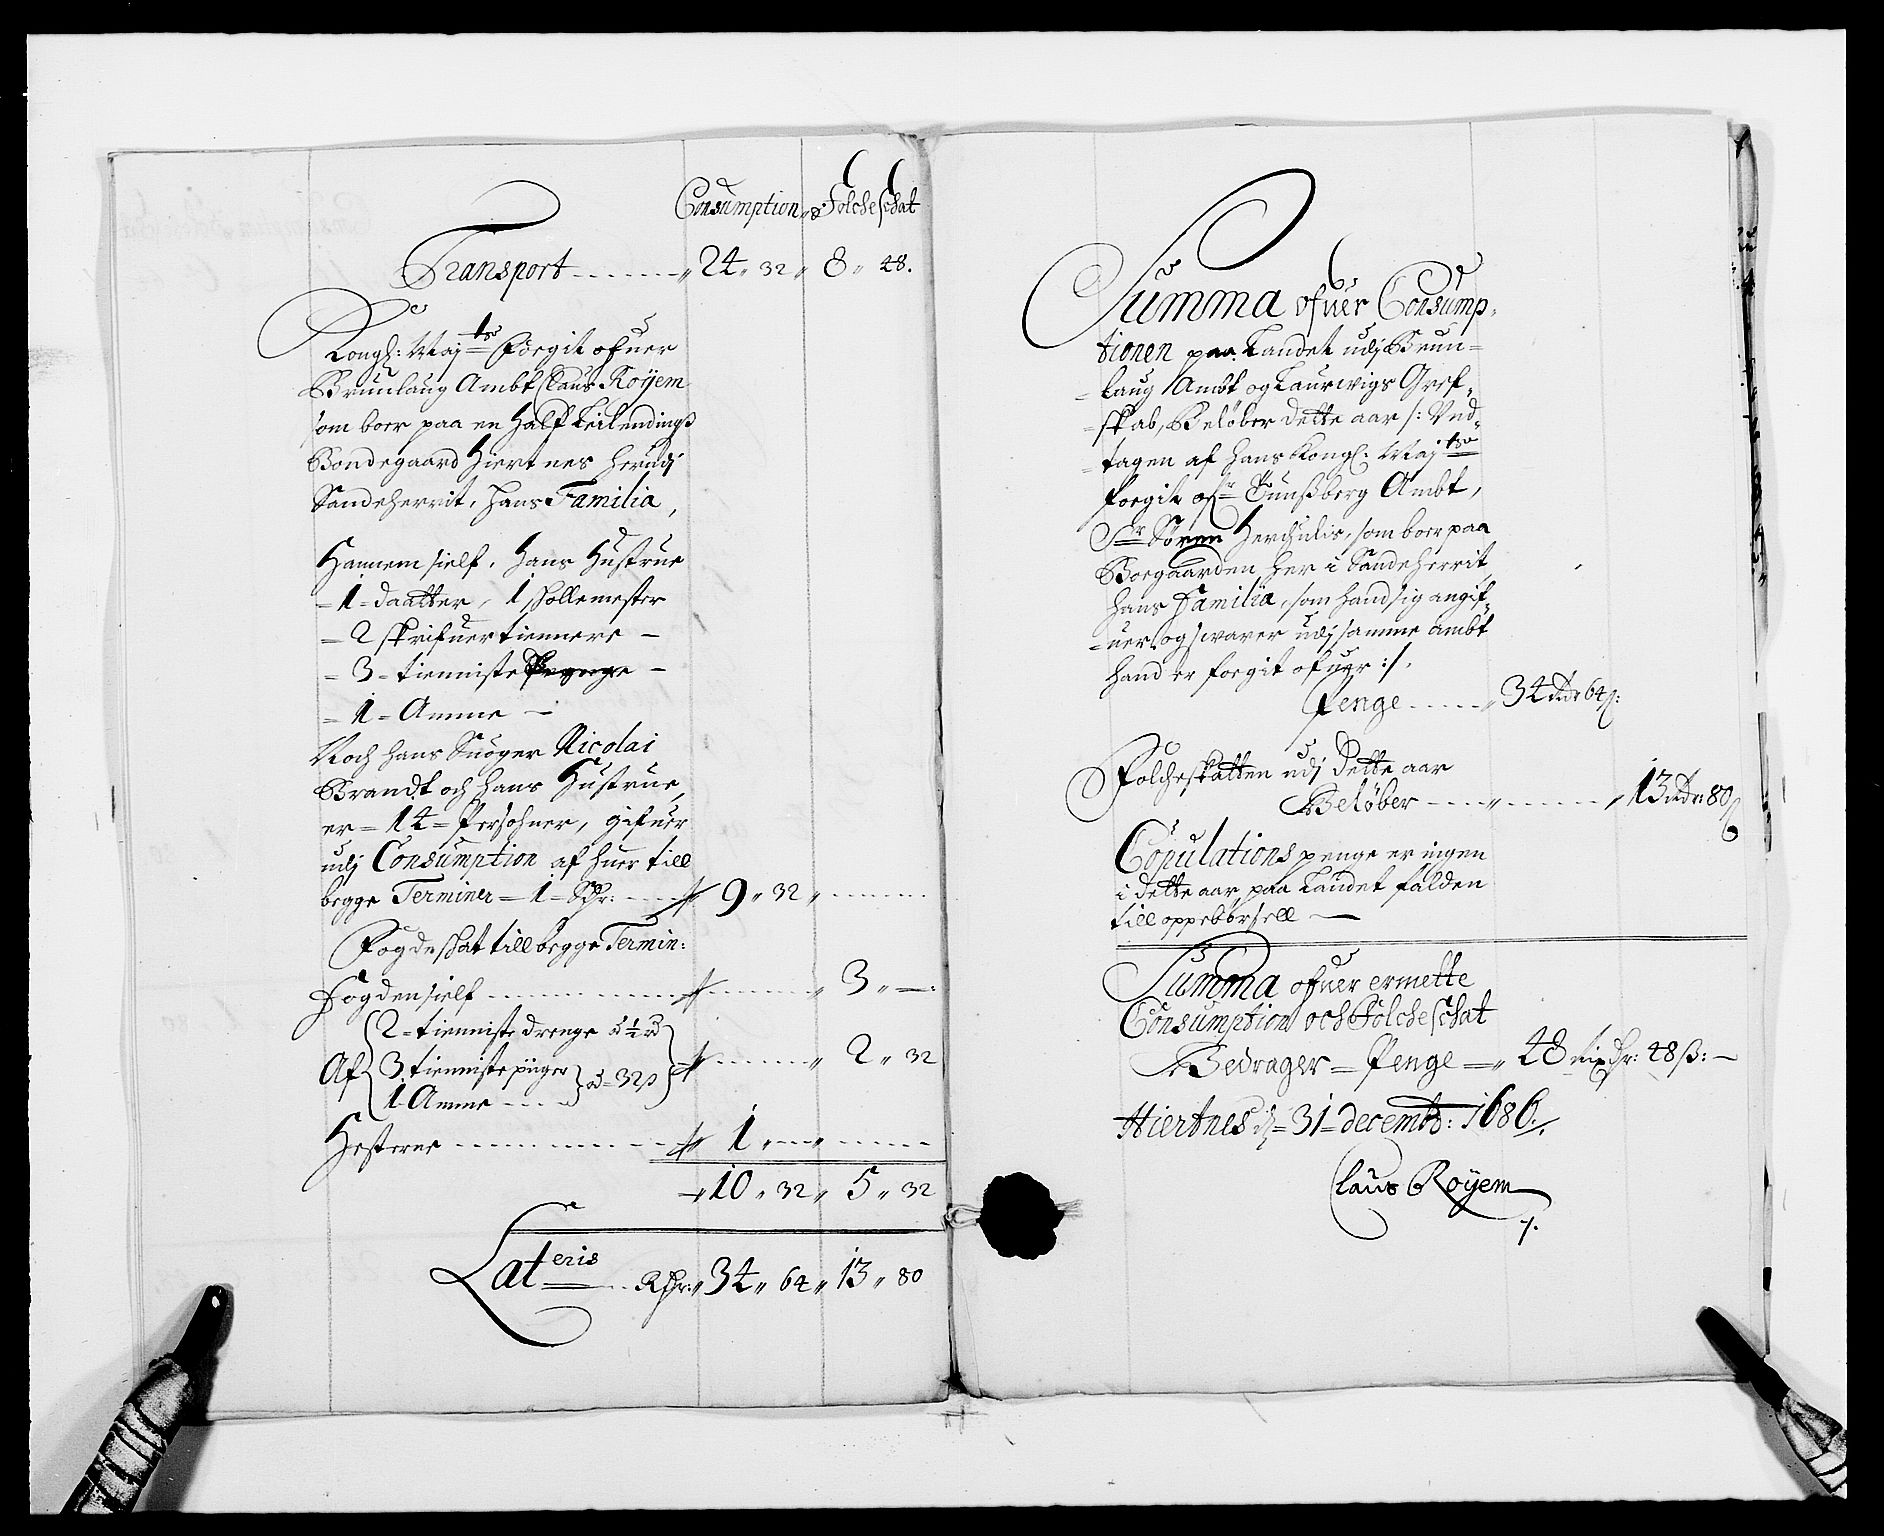 Consumption, & Folcheschat
Transport ------- „ 24 „ 32 „ 8 „ 48.
Kongl: Maj:ts Foegit ofuer
Brunlaug Ambt Claus Röyem
som boer paa en Half Leilendings
Bondegaard Hiertnes herudj
Sandeherrit, hans Familia,
Hannem sielf, hans Hustrue
- 1 - daatter, 1 skollemester
- 2 skrifuertiennere -
- 3 - tienniste
- 1 - Amme -
Noch hans Suoger Nicolai
Brandt och hans Hustrue,
er - 14 - Persohner, gifuer
udj Consumption af huer till
begge Terminer - 1 - --- „ 9 „ 32 „ ------
Fogdeskat till begge Termin:
Fogden sielf ---------- „ 3 „ -:
Af { 2 - tienniste drenge a ½ rd
3 tienniste piiger } a - 32 s } „ ------ „ 2 „ 32
1 Amme ---
Hesterne ---------- „ 1 „ -- „ ------
„ 10 „ 32 „ 5 „ 32
Lateris --- Rdr: „ 34 „ 64 „ 13 „ 80
Summa ofuer Consump-
tionen paa Landet udj Brun=
=laug Ambt og Laurwigs Gref-
=skab, Beløber dette aar /: Und-
=tagen af hans Kongl: Maj:ts
foegit ofr Tunsberg Ambt,
Sr Sören Herchulis, som boer paa
Boegaarden her i Sandeherrit
hans Familia, som hand sig angif-
=uer og swarer udj samme ambt
hand er foegit ofuer :/.
Penge ----- „ 34 Rdr 64 s:
Folcheskatten udj dette aar
Beløber ---- „ ------ „ 13 Rdr: 80 s
Copulations penge er ingen
i dette aar paa Landet falden
till oppebørsell -
Summa ofuer ermelte
Consumption och Folcheschat
Bedrager - Penge - „ 48 Rixdr: 48 ß: -
Hiertnes d - 31 - decembr: 1686 ./.
Claus Röyem
/.